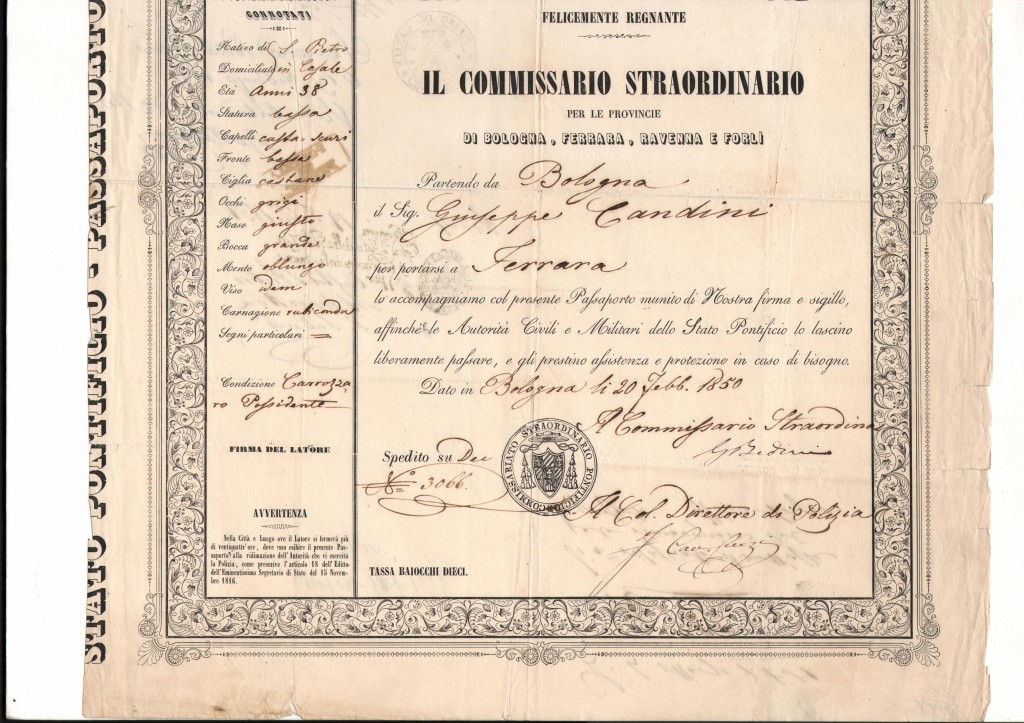 STATO PONTIFICIO - PASSAPORTO
CONNOTATI
Nativo di S. Pietro
Domiciliato in Casale
Età Anni 38
Statura bassa
Capelli casta. scuri
Fronte bassa
Ciglia castane
Occhi grigi
Naso giusto
Bocca grande
Mento oblungo
Viso idem
Carnagione rubiconda
Segni particolari =
Condizione Carrozza-
ro Possidente
FIRMA DEL LATORE
AVVERTENZA
Nella Città e Luogo ove il Latore si fermerà più
di ventiquattr'ore, deve esso esibire il presente Pas-
saporto alla vidimazione dell'Autorità che vi esercita
la Polizia, come prescrive l'articolo 18 dell'Editto
dell'Eminentissimo Segretario di Stato del 15 Novem-
bre 1816.
FELICEMENTE REGNANTE
IL COMMISSARIO STRAORDINARIO
PER LE PROVINCIE
DI BOLOGNA, FERRARA, RAVENNA E FORLÌ
Partendo da Bologna
il Sig. Giuseppe Candini
per portarsi a Ferrara
lo accompagniamo col presente Passaporto munito di Nostra firma e sigillo,
affinchè le Autorità Civili e Militari dello Stato Pontificio lo lascino
liberamente passare, e gli prestino assistenza e protezione in caso di bisogno.
Dato in Bologna li 20 Febb. 1850
Il Commissario Straordina
G Bedini
Spedito su Dec
N.° 3066.
COMMISSARIATO STRAORDINARIO PONTIFICIO
Il Col. Direttore di Polizia
TASSA BAIOCCHI DIECI.